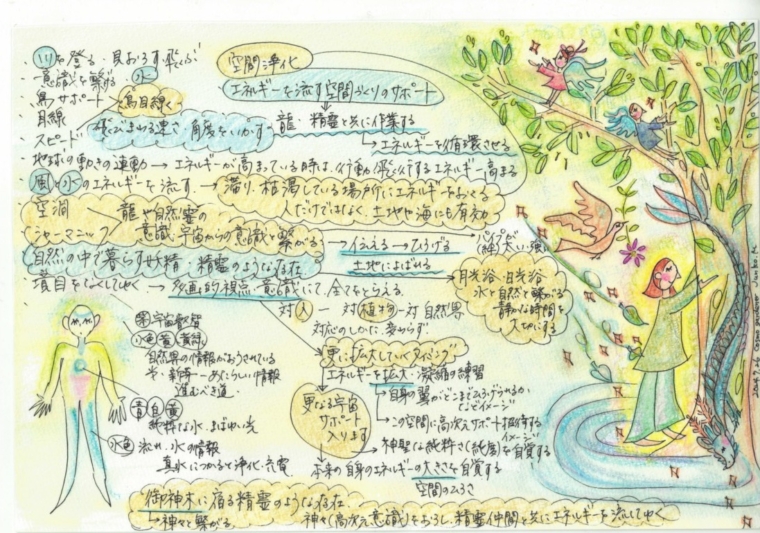 ・川を登る・見おろす・飛ぶ
・意識を繋げる 水
・鳥サポート
・目線 鳥目線く
・スピード 飛びまわる速さ 角度をいかす
空間浄化
エネルギーを流す空間づくりのサポート
龍・精霊と共に作業する
→エネルギーを循環させる
・地球の動きの連動→エネルギーが高まっている時は、行動
エネルギー高まる
・風や水のエネルギーを流す→滞り、枯渇している場所にエネルギーをおくる
人だけではなく、土地や海にも有効
・空洞
シャーマニック
龍や自然霊の
意識・宇宙からの意識と繋がる
→伝える→ひろげる
パイプが
太い強
・自然の中で暮らす妖精・精霊のような存在
土地によばれる
月光浴・日光浴
水を自然と繋がる
静かな時間を
大切にする
・境目をなくしてゆく→多面的視点・意識にて、全てをとらえる
対人―対植物―対自然界
対応のしかた変わらず
宇宙叡智
水色 黄 黄緑
自然界の情報がおりてきている
今・新時 あたらしい情報
進むべき道
青 白 黄
純粋な水、まばゆい光
水色 流れ、水の情報
真水につかると浄化・充電
更に拡大していくタイミング
エネルギーを拡大・凝縮の練習
→自身の翼がどこまでひろげられるか
などイメージ
更なる宇宙
サポート
入ります
→この空間に高次元サポート招待する
イメージ
→神聖な純粋さ(純度)を自覚する
本来の自身のエネルギーの大きさを自覚する
空間のひろさ
・御神木に宿る精霊のような存在
→神々と繋がる
神々(高次元意識)をおろし、精霊仲間と共にエネルギーを流してゆく